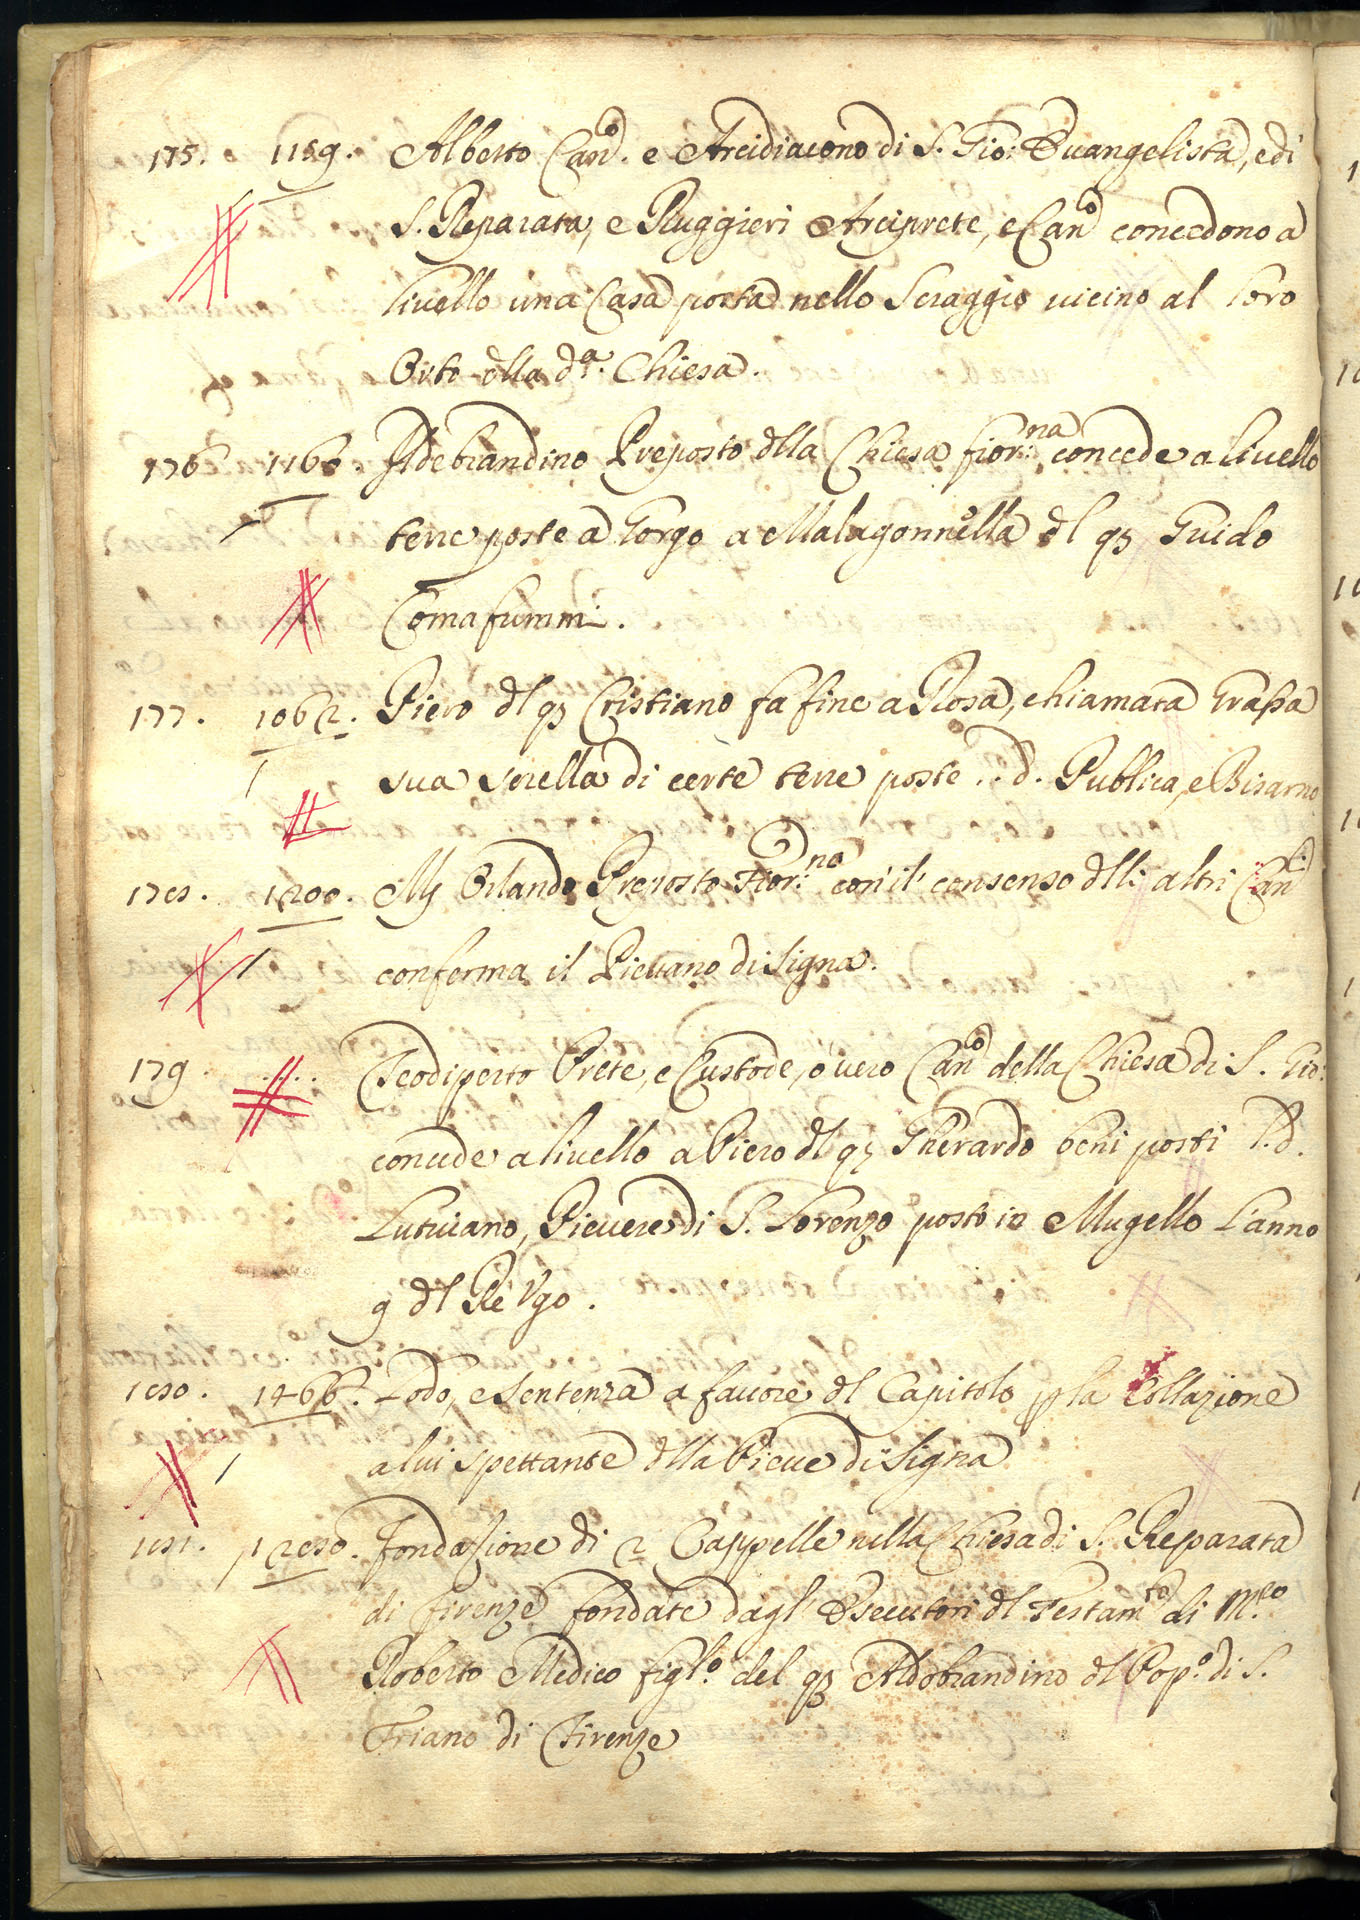 175. 1159. Alberto Can.º e Arcidiacono di S. Gio: Evangelista, e di
S. Reparata, e Ruggieri Arciprete, e Canº concedono a
livello una Casa posta nello Scraggio vicino al loro
Orto dlla dª. Chiesa.
176 1166. Ildebrandino Preposto dlla Chiesa fior:na concede a livello
terre poste a Gorgo a Malagonnella dl q3 Guido
Comafummi.
177. 1062. Piero dl q3 Cristiano fa fine a Rosa, chiamata Grassa
sua sorella di certe terre poste .. d. Publica, e Bisarno
178. 1200. Mr Orlando Preposto Fior:no con il consenso dlli altri Can.i
conferma il Pievano di Signa.
179. ..... Teodiperto Prete, e Custode, o vero Canº della Chiesa di S. Gio:
concede a livello a Piero dl q3 Gherardo beni posti l.d.
Lutiviano, Pieverе di S. Lorenzo posto in Mugello l'anno
9 dl Re Ugo.
180. 1466. Lodo, e sentenza a favore dl Capitolo pla Collazione
a lui spettante dlla Pieve di Signa
181. 1280. Fondazione di 2 Cappelle nella Chiesa di S. Reparata
di firenze fondate dagl' Esecutori dl Testamto di M.ro
Roberto Medico figl.º del q3 Aldobrandino dl Pop.º di S.
Friano di Firenze